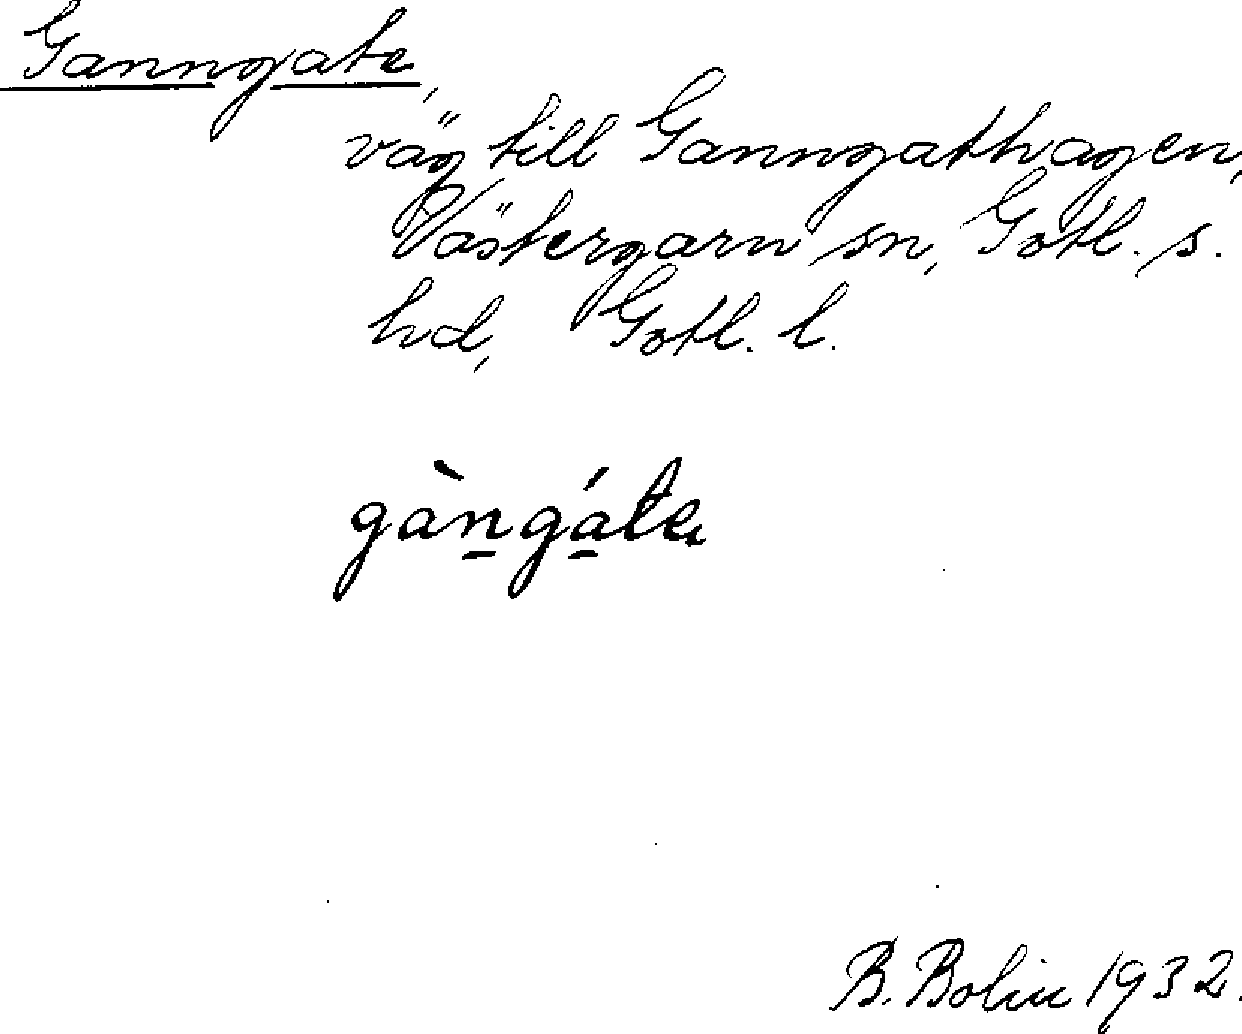 Ganngate,
väg till Ganngathagen,
Västergarn sn, Gotl. s.
hd, Gotl. l.
gàn̲gá̲te
B. Bolin 1932.